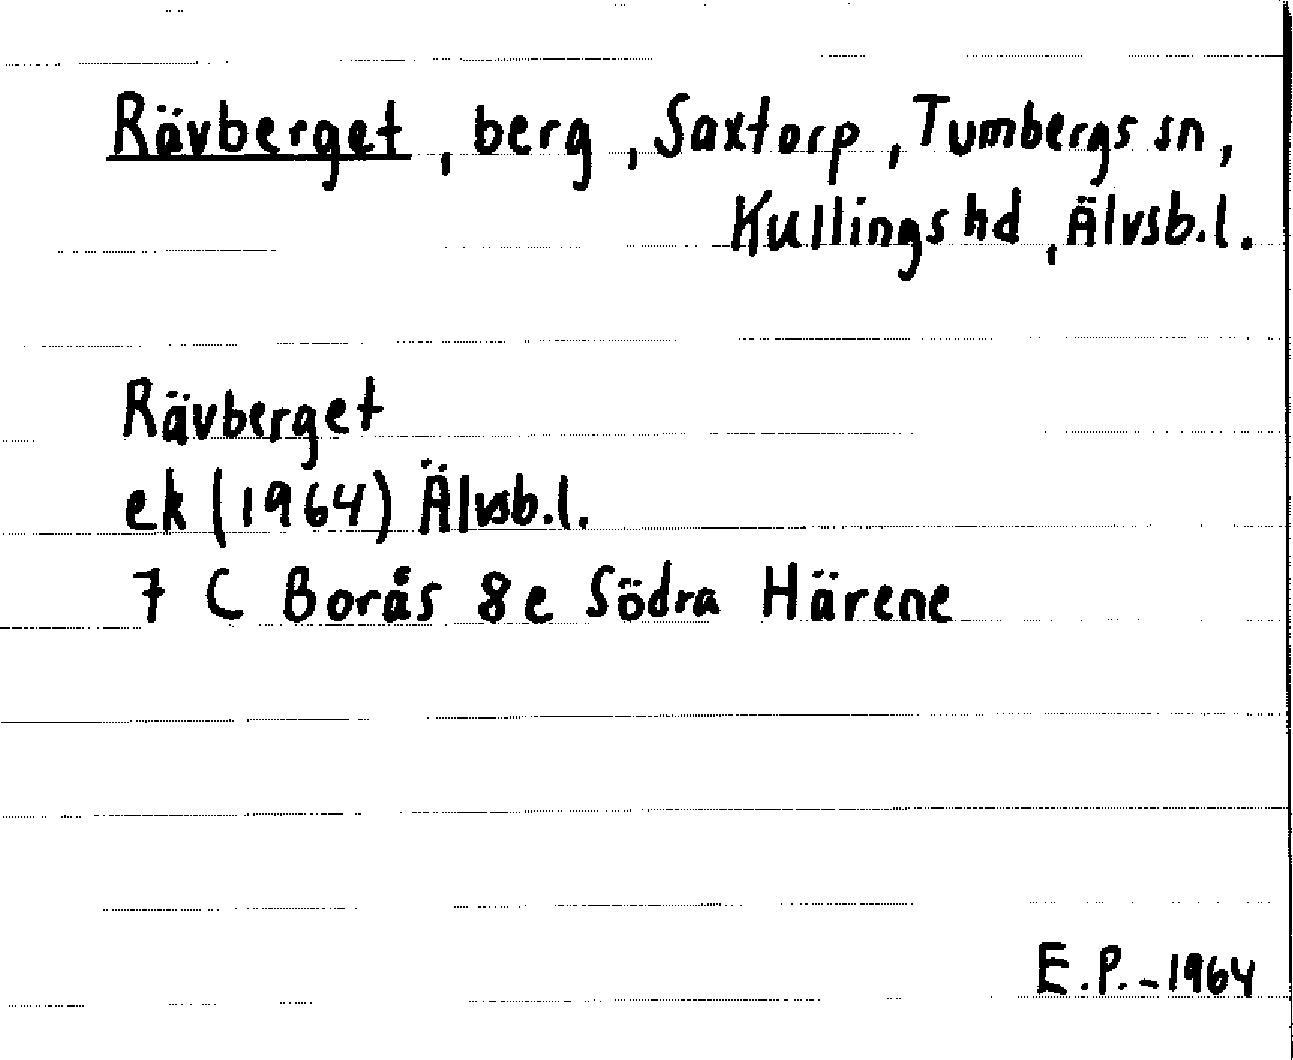 Rävberget, berg, Saxtorp, Tumbergs sn,
Kullings hd, Älvsb.l.
Rävberget
ek (1964) Älvsb.l.
7 C Borås 8e Södra Härene
E.P.-1964